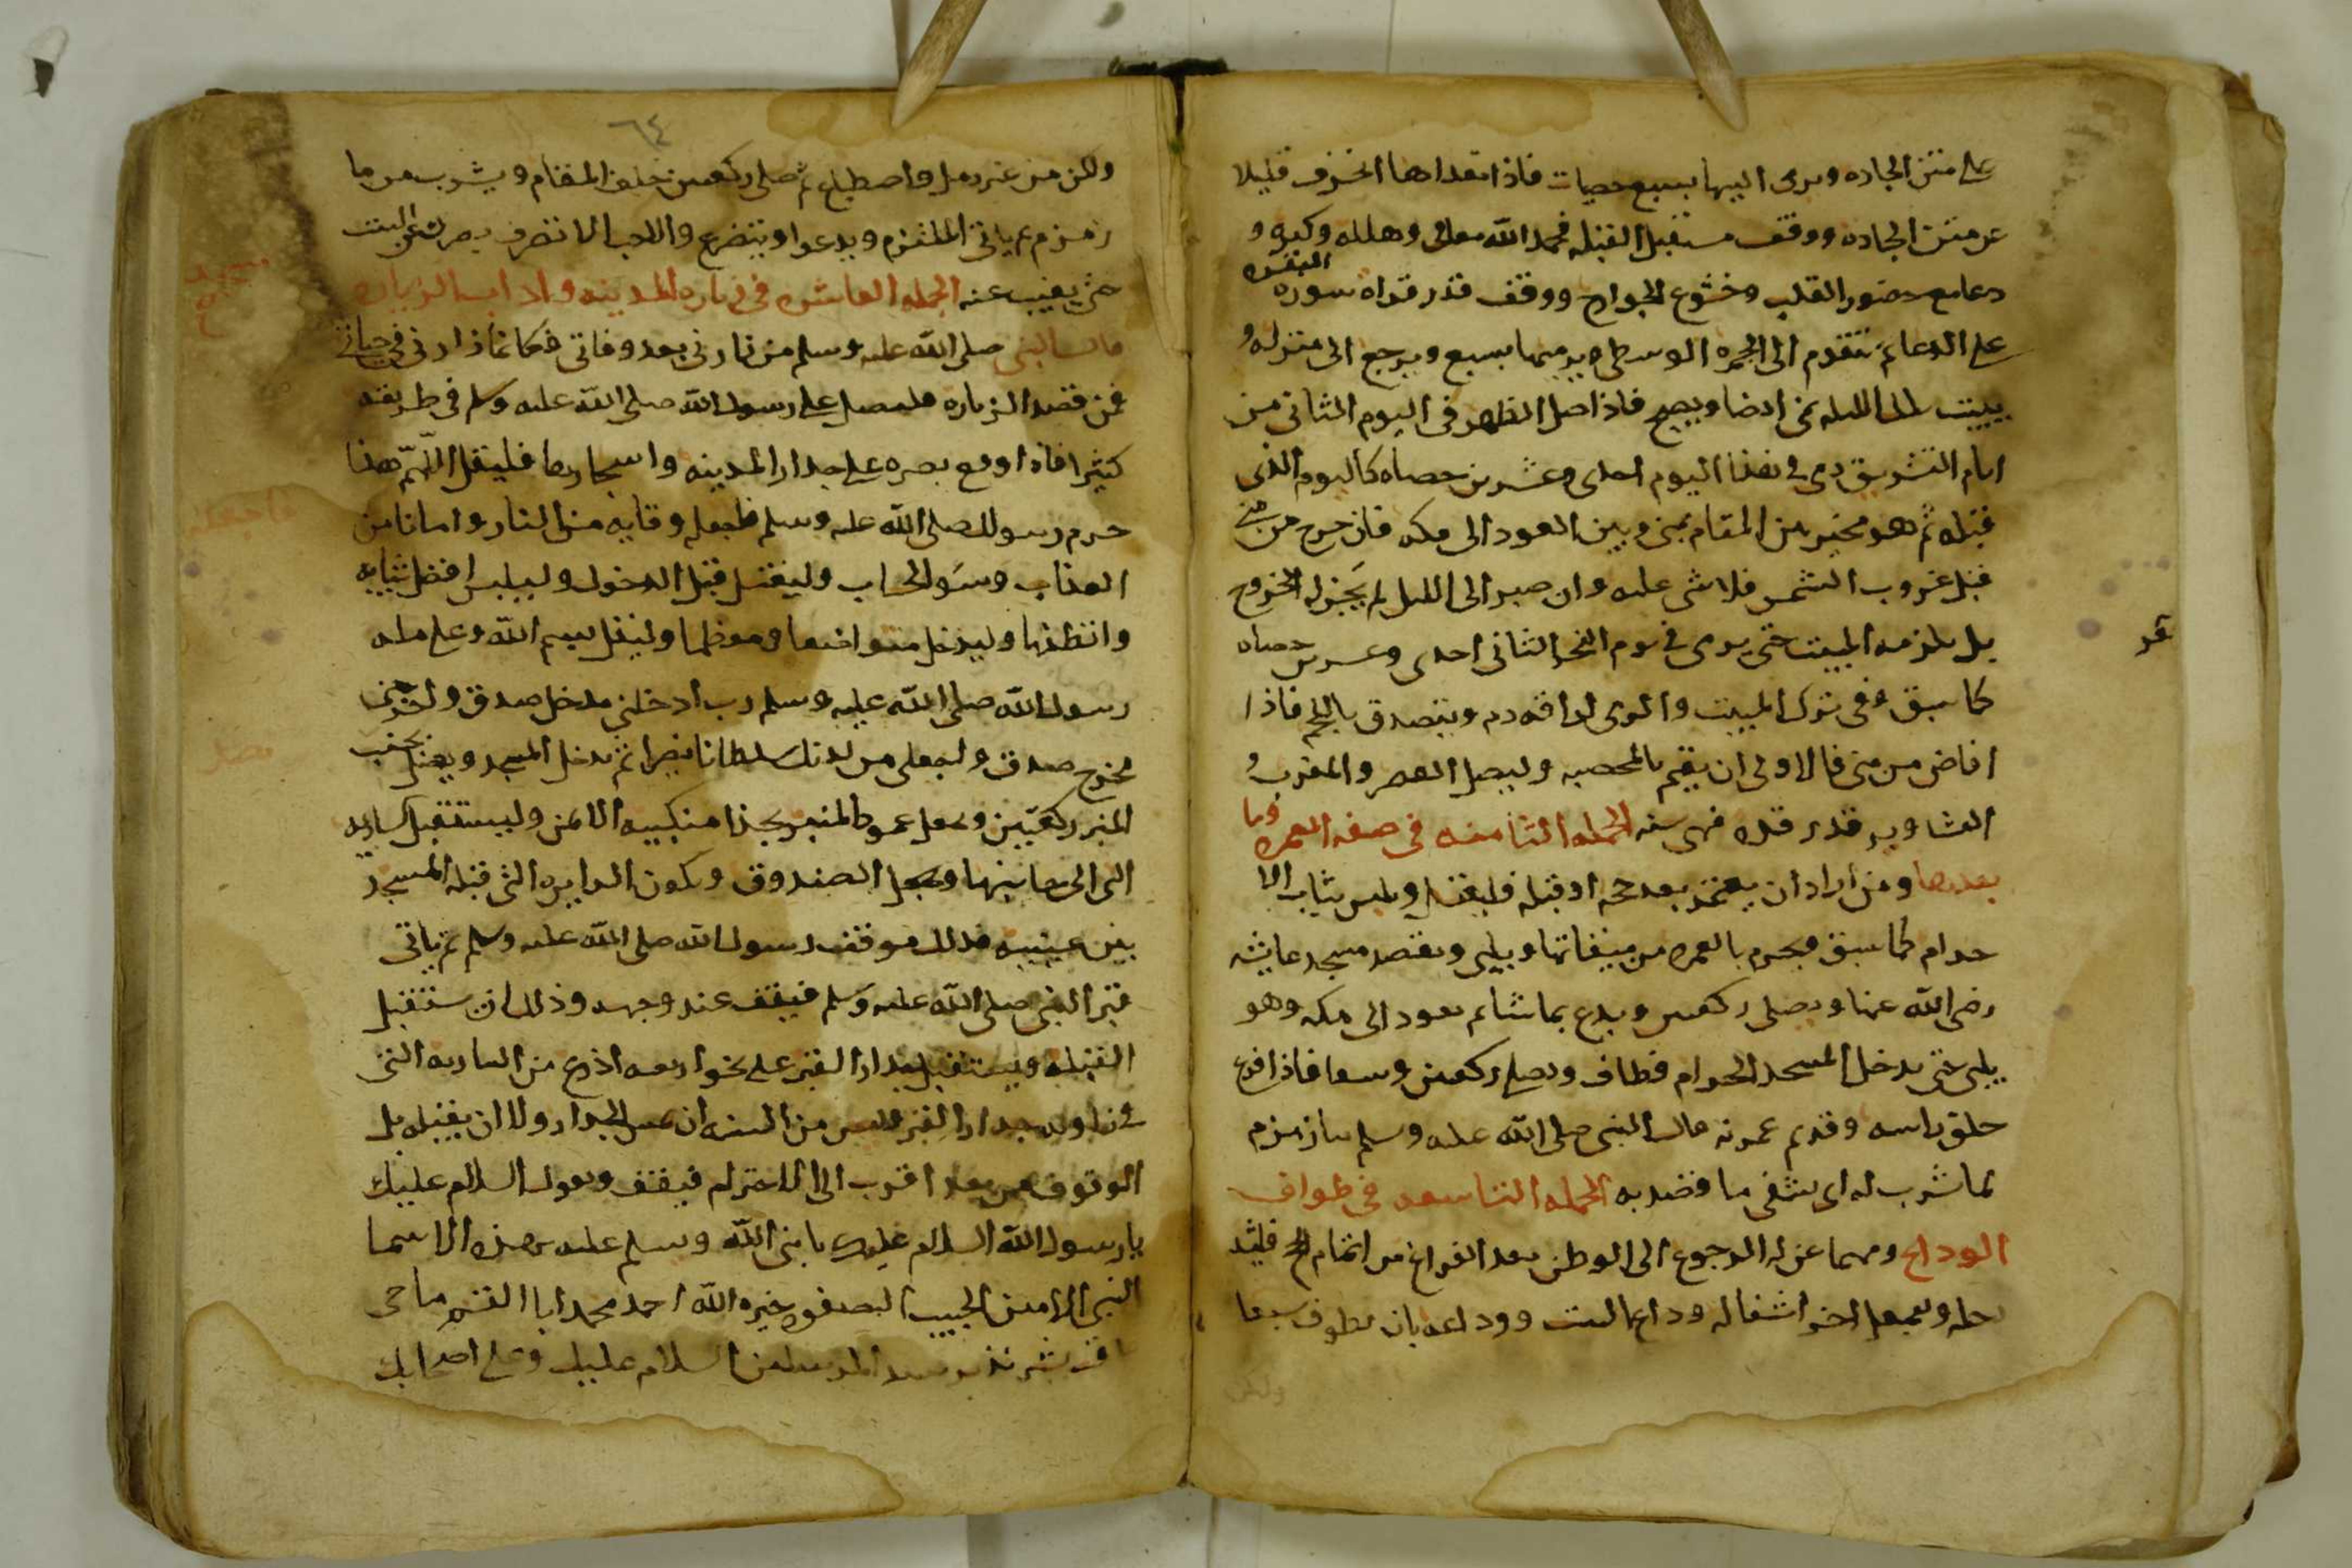 على متن الجاده ويرمى اليها بسبع حصيات فاذا تعداها انحرف قليلا
عن متن الجاده ووقف مستقبل القبله فحمد الله تعالى وهلله وكبره و
دعا مع حضور القلب وخشوع الجوارح ووقف قدر قراه سوره البقره
على الدعا ثم يتقدم الى الجمره الوسطى ويرميها بسبع ويرجع الى منزله و
يبيت تلك الليله بمنى ايضا ويصبح فاذا صلى الظهر فى اليوم الثانى من
ايام التشريق رمى فى هذا اليوم احدى وعشرين حصاه كاليوم الذى
قبله ثم هو مخير بين المقام بمنى وبين العود الى مكه فان خرج من منى
قبل غروب الشمس فلا شى عليه وان صبر الى الليل لم يَجُز له الخروج
بل يلزمه المبيت حتى يرمى فى يوم النحر الثانى احدى وعشرين حصاه
كما سبق وفى ترك المبيت والرمى اراقه دم ويتصدق باللحم فاذا
افاض من منى فالاولى ان يقيم بالمحصبه وليصل العصر والمغرب و
العشا ويرقد رقده فهى سنه الجمله الثامنه فى صفه العمره وما
بعدها ومن اراد ان يعتمر بعد حجه او قبله فليغتسل ويلبس ثياب الا
حرام كما سبق ويحرم بالعمره من ميقاتها ويلبى ويقصد مسجد عايشه
رضى الله عنها ويصلى ركعتين ويدع بما شا ثم يعود الى مكه وهو
يلبى حتى يدخل المسجد الحرام فطاف وصلى ركعتين وسعا فاذا فرغ
حلق راسه وقد تم عمرته قال النبى صلى الله عليه وسلم ما زمزم
لما شرب له اى يشفى ما قصد به الجمله التاسعه فى طواف
الوداع ومهما عن له الرجوع الى الوطن بعد الفراغ من اتمام الحج فليشد
رحله ويجعل اخر اشغاله وداع البيت ووداعه بان يطوف سبعا
ولكن
٦٤
ولكن من غير رمل واضطباع ثم صلى ركعتين خلف المقام ويشرب من ما
زمزم ثم ياتى الملتزم ويدعوا ويتضرع والاحب الا تنصرف بصرك عن البيت
حتى يغيب عنه الجمله العاشره فى زياره المدينه واداب الزياره
قال النبى صلى الله عليه وسلم من زارنى بعد وفاتى فكانما زارنى فى حياتى
فمن قصد الزياره فليصل على رسول الله صلى الله عليه وسلم فى طريقه
كثيرا فاذا وقع بصره على جدار المدينه واشجارها فليقل اللهم هذا
حرم رسولك صلى الله عليه وسلم فاجعله وقايه من النار وامانا من
العذاب وسوَ الحساب وليغتسل قبل الدخول وليلبس افضل ثيابه
وانظفها وليدخل متواضعا ومعظما وليقل بسم الله وعلى مله
رسول الله صلى الله عليه وسلم رب ادخلنى مدخل صدق واخرجنى
مخرج صدق واجعل من لدنك سلطانا نصيرا ثم يدخل المسجد ويصل بجنب
المنبر ركعتين ويجعل عمود المنبر بحذا منكبيه الايمن وليستقبل الساريه
التى الى جانبها وجعل الصندوق ويكون الدايره التى قبله المسجد
بين عينيه فذلك موقف رسول الله صلى الله عليه وسلم ثم ياتى
قبر النبى صلى الله عليه وسلم فيقف عند وجهه وذلك ان يستقبل
القبله ويستقبل جدار القبر على نحو اربعه اذرع من الساريه التى
فى زاويه جدار القبر وليس من السنه ان يمس الجدار ولا ان يقبله بل
الوقوف من بعد اقرب الى الاحترام فيقف ويقول السلام عليك
يا رسول الله السلام عليك يا نبى الله وسلم عليه بهذه الاسما
النبى الامين الحبيب الصفوه خيره الله احمد محمد ابا القسم ماحى
عاقب بشير نذير سيد المرسلين السلام عليك وعلى اصحابك